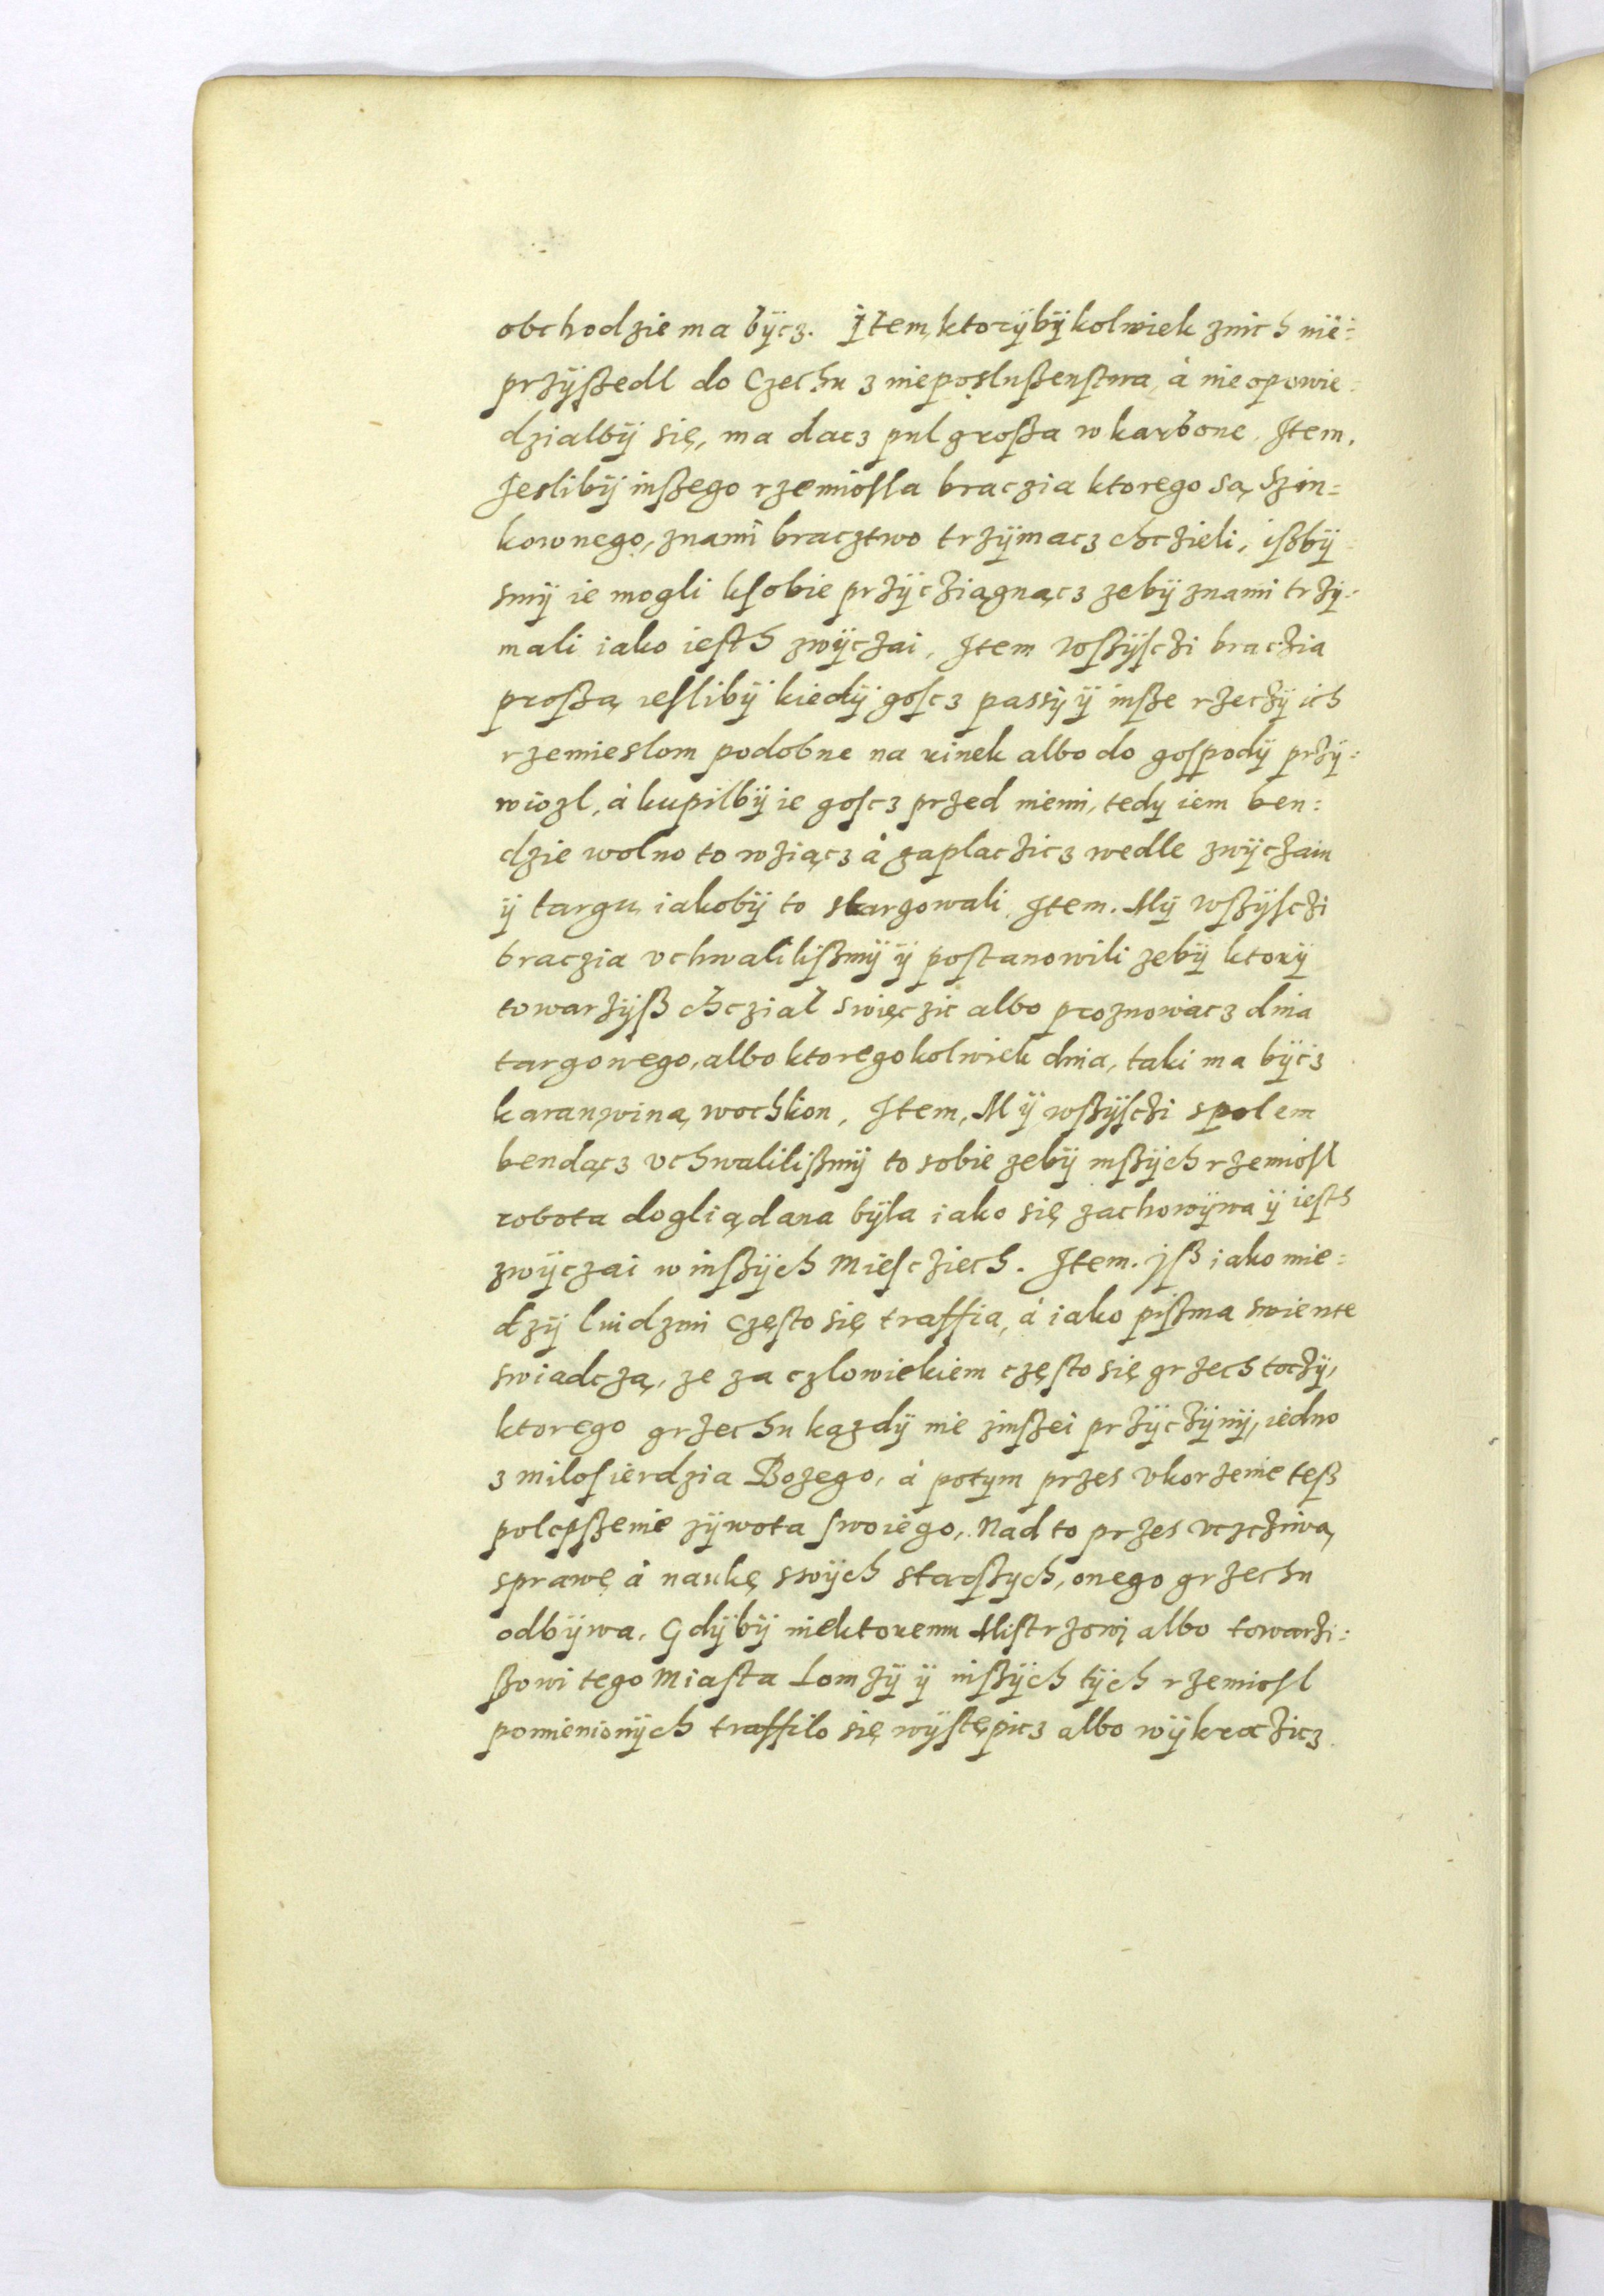 obchodzie ma bÿcz. Item, ktorÿbÿkolwiek znich nie=
przÿßedl do Czechu z nieposlußenstwa, à nie opowie=
dzialbÿ się, ma dacz pul großa w karbone. Item.
Jeslibÿ inßego rzemiosla braczia ktorego są Szin=
kownego, znami bracztwo trzÿmacz chczieli, ißbÿ=
smÿ ie mogli ksobie przÿcziągnącz zebÿ znami trzÿ=
mali iako iesth zwÿczai, Item Wßÿsczi braczia
proßą ieslibÿ kiedÿ goscz passÿ ÿ inße rzeczÿ ich
rzemieslom podobne na rinek albo do gospodÿ przÿ=
wiozl, à kupilbÿ ie goscz przed niemi, tedy iem ben=
dzie wolno to wziącz à zaplaczicz wedle zwÿczaiu
ÿ targu iakobÿ to stargowali. Item. Mÿ wßÿsczi
braczia vchwalilißmÿ ÿ postanowili zebÿ ktorÿ
towarzÿß chczial swięczic albo proznowacz dnia
targowego, albo ktoregokolwiek dnia, taki ma bÿcz
karan winą wochkon, Item, Mÿ wßÿsczi spolem
bendącz vchwalilißmÿ to sobie zebÿ inßÿch rzemiosl
robota dogliądana bÿla iako się zachowÿwa ÿ iesth
zwÿczai w inßÿch Miescziech. Item. jß iako mie=
dzÿ luidzmi często się traffia, à iako pißma swiente
swiadczą, ze za czlowiekiem często się grzech toczÿ,
ktorego grzechu kązdÿ nie zinßei przÿczÿnÿ, iedno
z milosierdzia Bozego, à potym przes vkorzenie teß
polepßenie zÿwota swoiego, Nad to przes vczcziwą
sprawę à naukę swÿch starßych, onego grzechu
odbÿwa. Gdÿbÿ niektoremu Mistrzowi albo towarzi=
ßowi tego Miasta Lomzÿ ÿ inßÿch tÿch rzemiosl
pomienionÿch traffilo się wÿstępicz albo wÿkroczicz